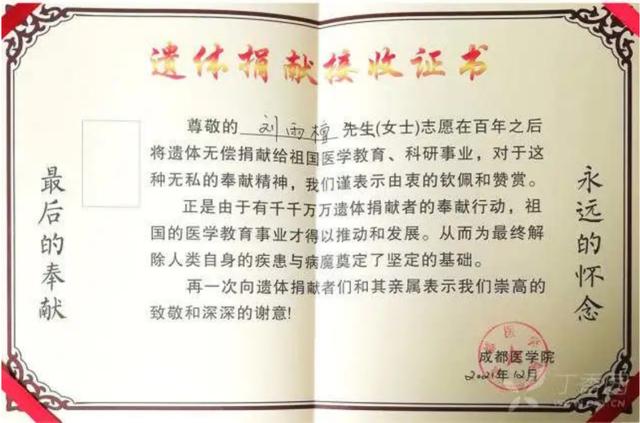 遗体捐献接收证书
最后的奉献
尊敬的 刘雨檀 先生(女士)志愿在百年之后
将遗体无偿捐献给祖国医学教育、科研事业，对于这
种无私的奉献精神，我们谨表示由衷的钦佩和赞赏。
正是由于有千千万万遗体捐献者的奉献行动，祖
国的医学教育事业才得以推动和发展。从而为最终解
除人类自身的疾患与病魔奠定了坚定的基础。
再一次向遗体捐献者们和其亲属表示我们崇高的
致敬和深深的谢意!
成都医学院
2021年12月
永远的怀念
丁香园